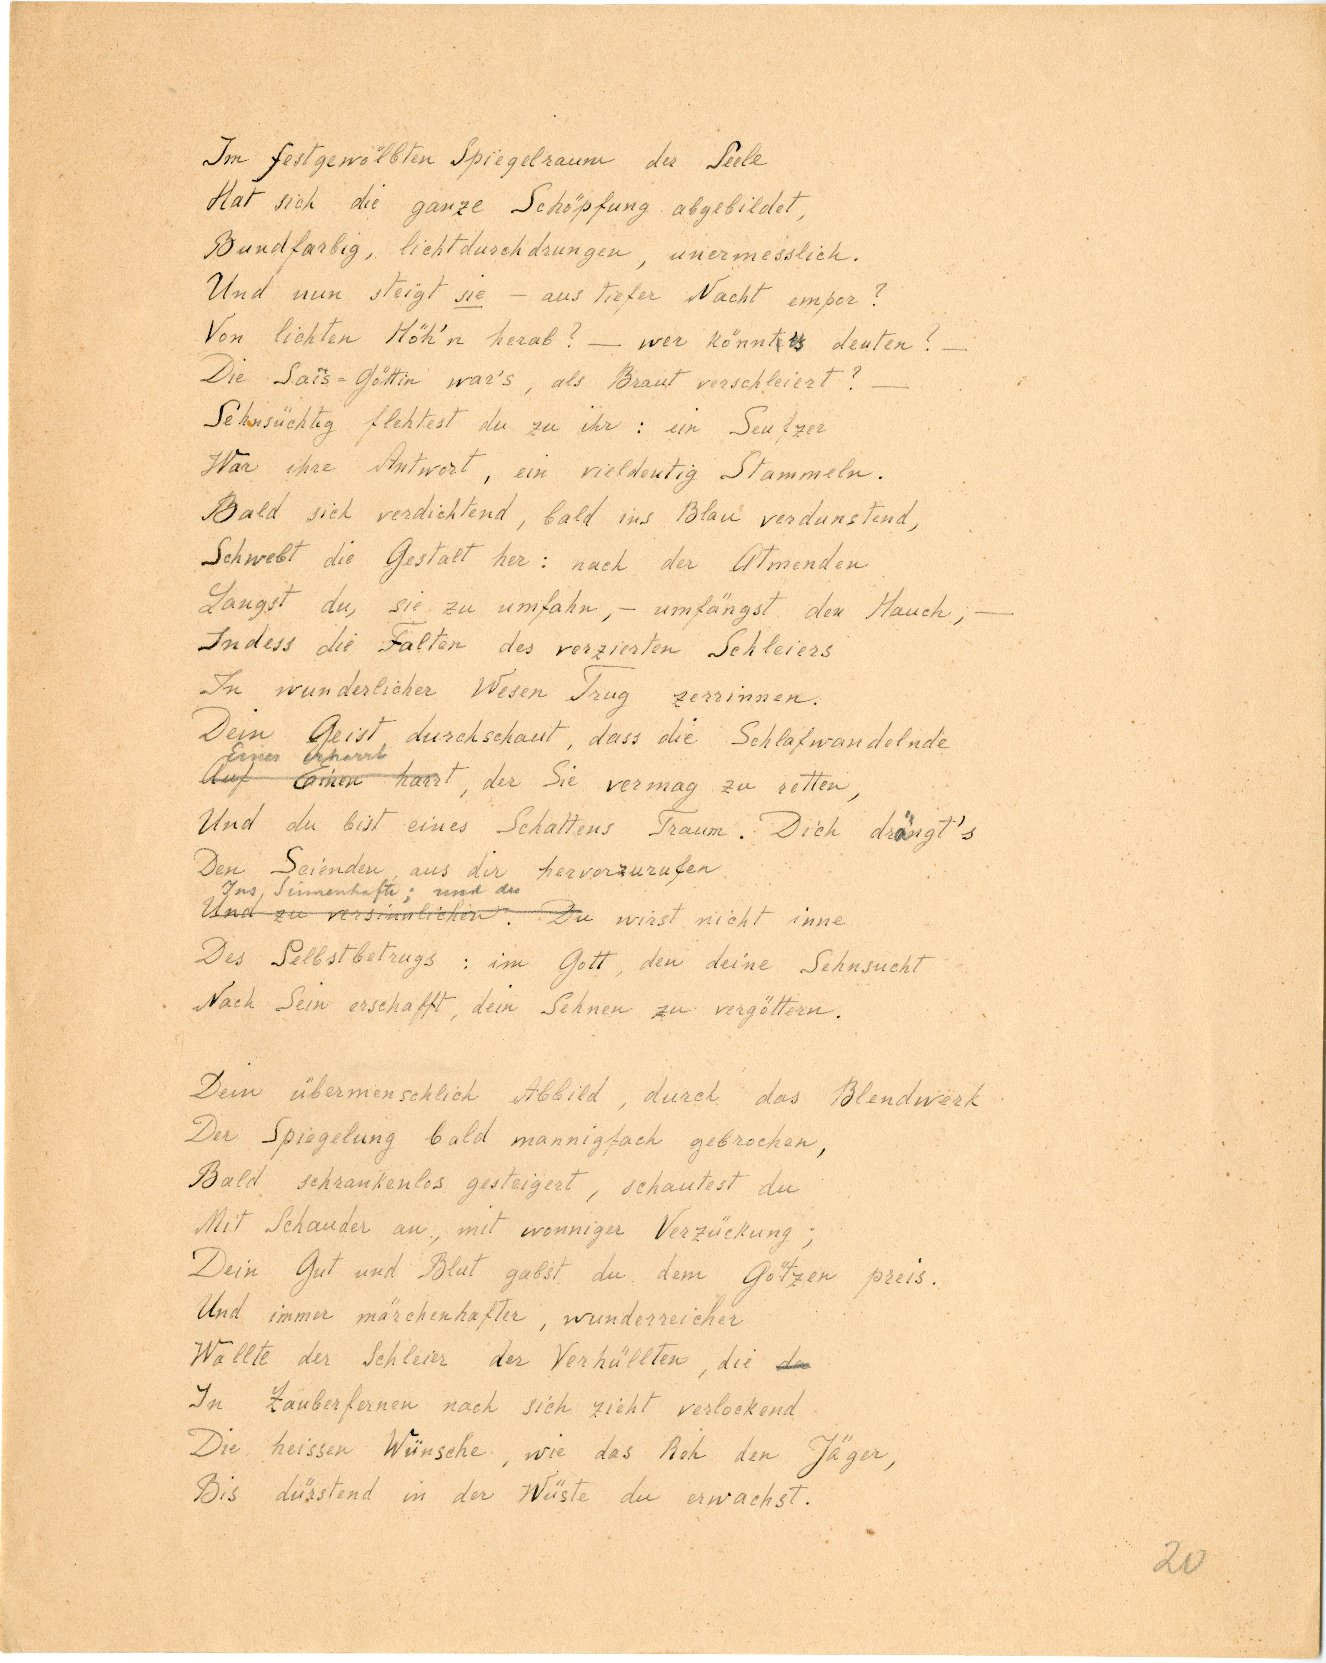 Im festgewölbten Spiegelraum der Seele
Hat sich die ganze Schöpfung abgebildet,
Bundfarbig, lichtdurchdrungen, unermesslich.
Und nun steigt sie – aus tiefer Nacht empor?
Von lichten Höh'n herab? — wer könnt es deuten? —
Die Saïs-Göttin war's, als Braut verschleiert? —
Sehnsüchtig flehtest du zu ihr: ein Seufzer
War ihre Antwort, ein vieldeutig Stammeln.
Bald sich verdichtend, bald ins Blau verdunstend,
Schwebt die Gestalt her: nach der Atmenden
Langst du, sie zu umfahn, – umfängst den Hauch, —
Indess die Falten des verzierten Schleiers
In wunderlicher Wesen Trug zerrinnen.
Dein Geist durchschaut, dass die Schlafwandelnde
Eines erharrt
Auf Einen harrt, der Sie vermag zu retten,
Und du bist eines Schattens Traum. Dich drängt's
Den Seienden aus dir hervorzurufen
Ins Sinnenhafte; und du
Und zu versinnlichen. Du wirst nicht inne
Des Selbstbetrugs: im Gott, den deine Sehnsucht
Nach Sein erschafft, dein Sehnen zu vergöttern.
Dein übermenschlich Abbild, durch das Blendwerk
Der Spiegelung bald mannigfach gebrochen,
Bald schrankenlos gesteigert, schautest du
Mit Schauder an, mit wonniger Verzückung;
Dein Gut und Blut gabst du dem Götzen preis.
Und immer märchenhafter, wunderreicher
Wallte der Schleier der Verhüllten, die da
In Zauberfernen nach sich zieht verlockend
Die heissen Wünsche, wie das Reh den Jäger,
Bis dürstend in der Wüste du erwachst.
20